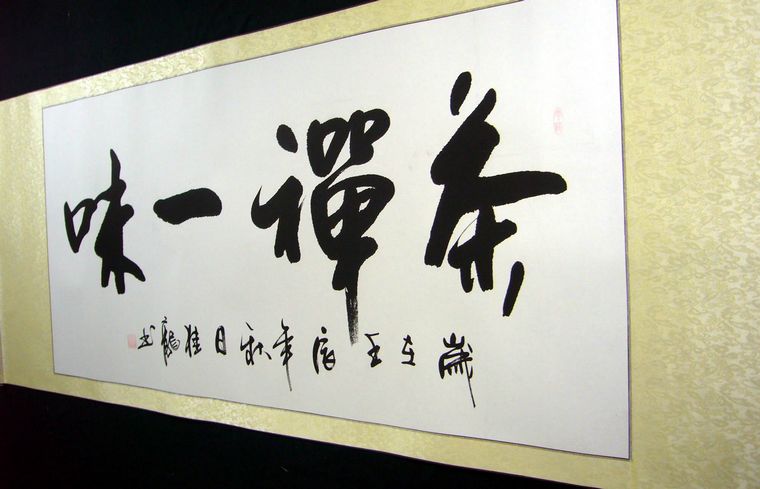 茶禪一味
歲在壬辰年秋日桂鶴书